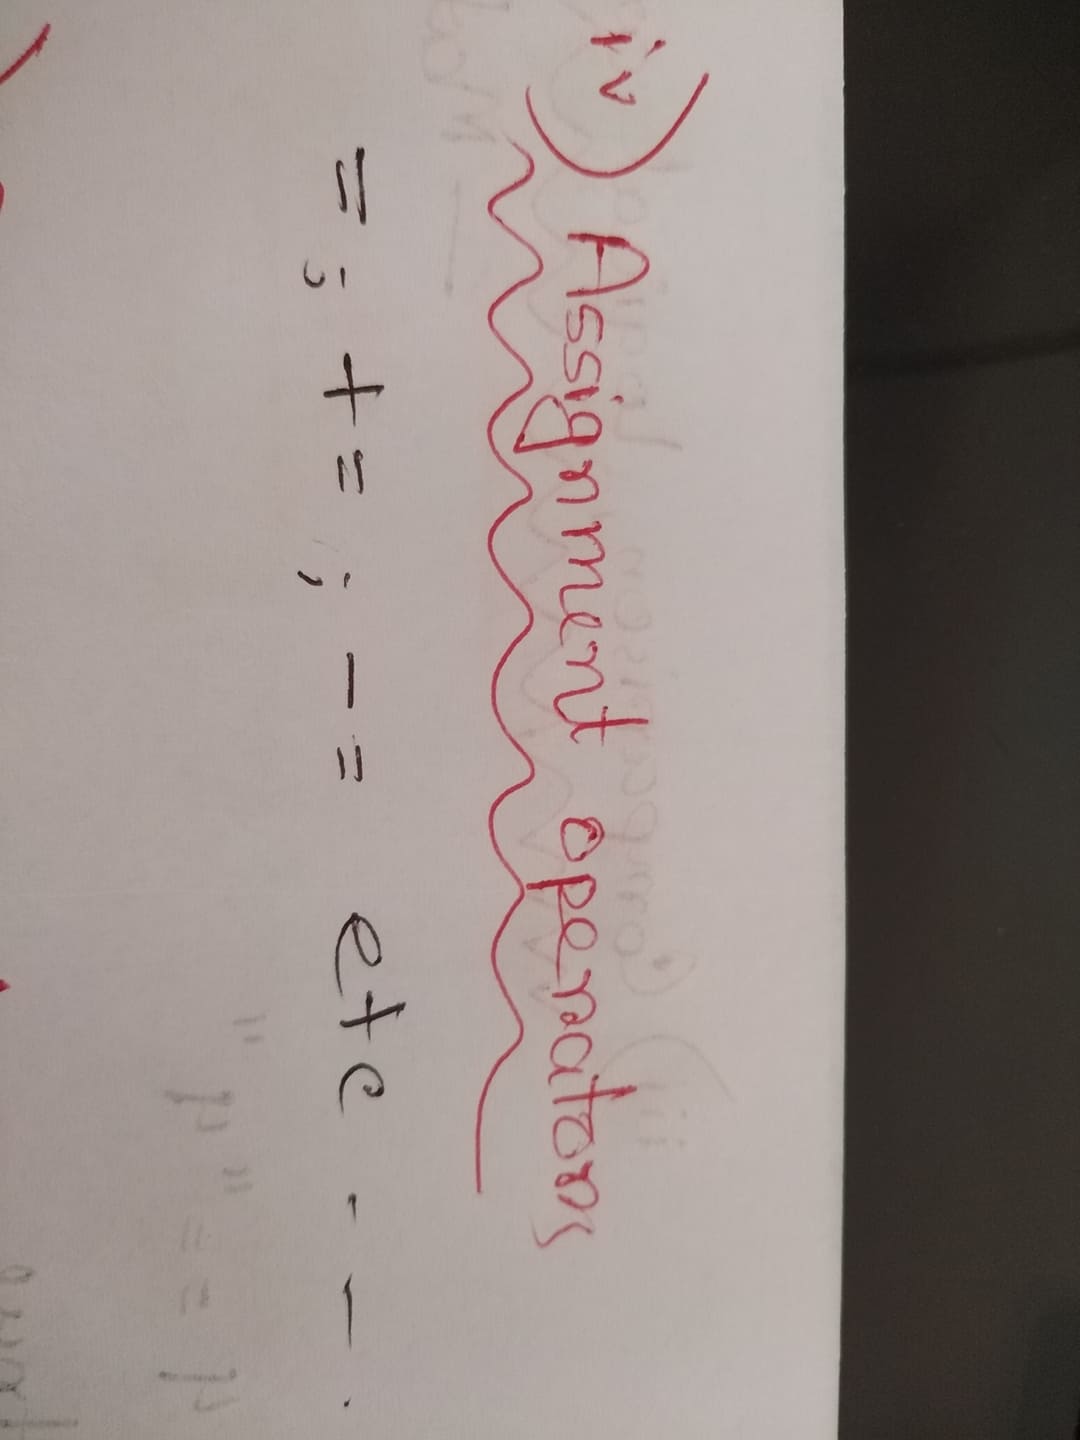 iv) Assignment operators
= ; += ; -= etc - — .